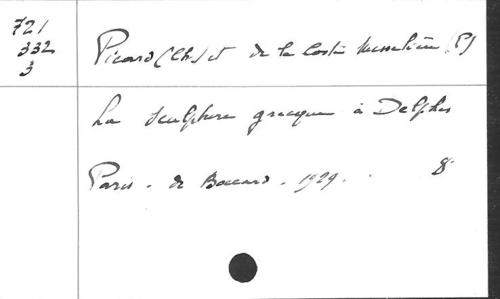 721
332
3
Picard (Ch.) et de la Coste Messelière (P)
La sculpture grecque à Delphes
Paris. de Boccard. 1929. 8°